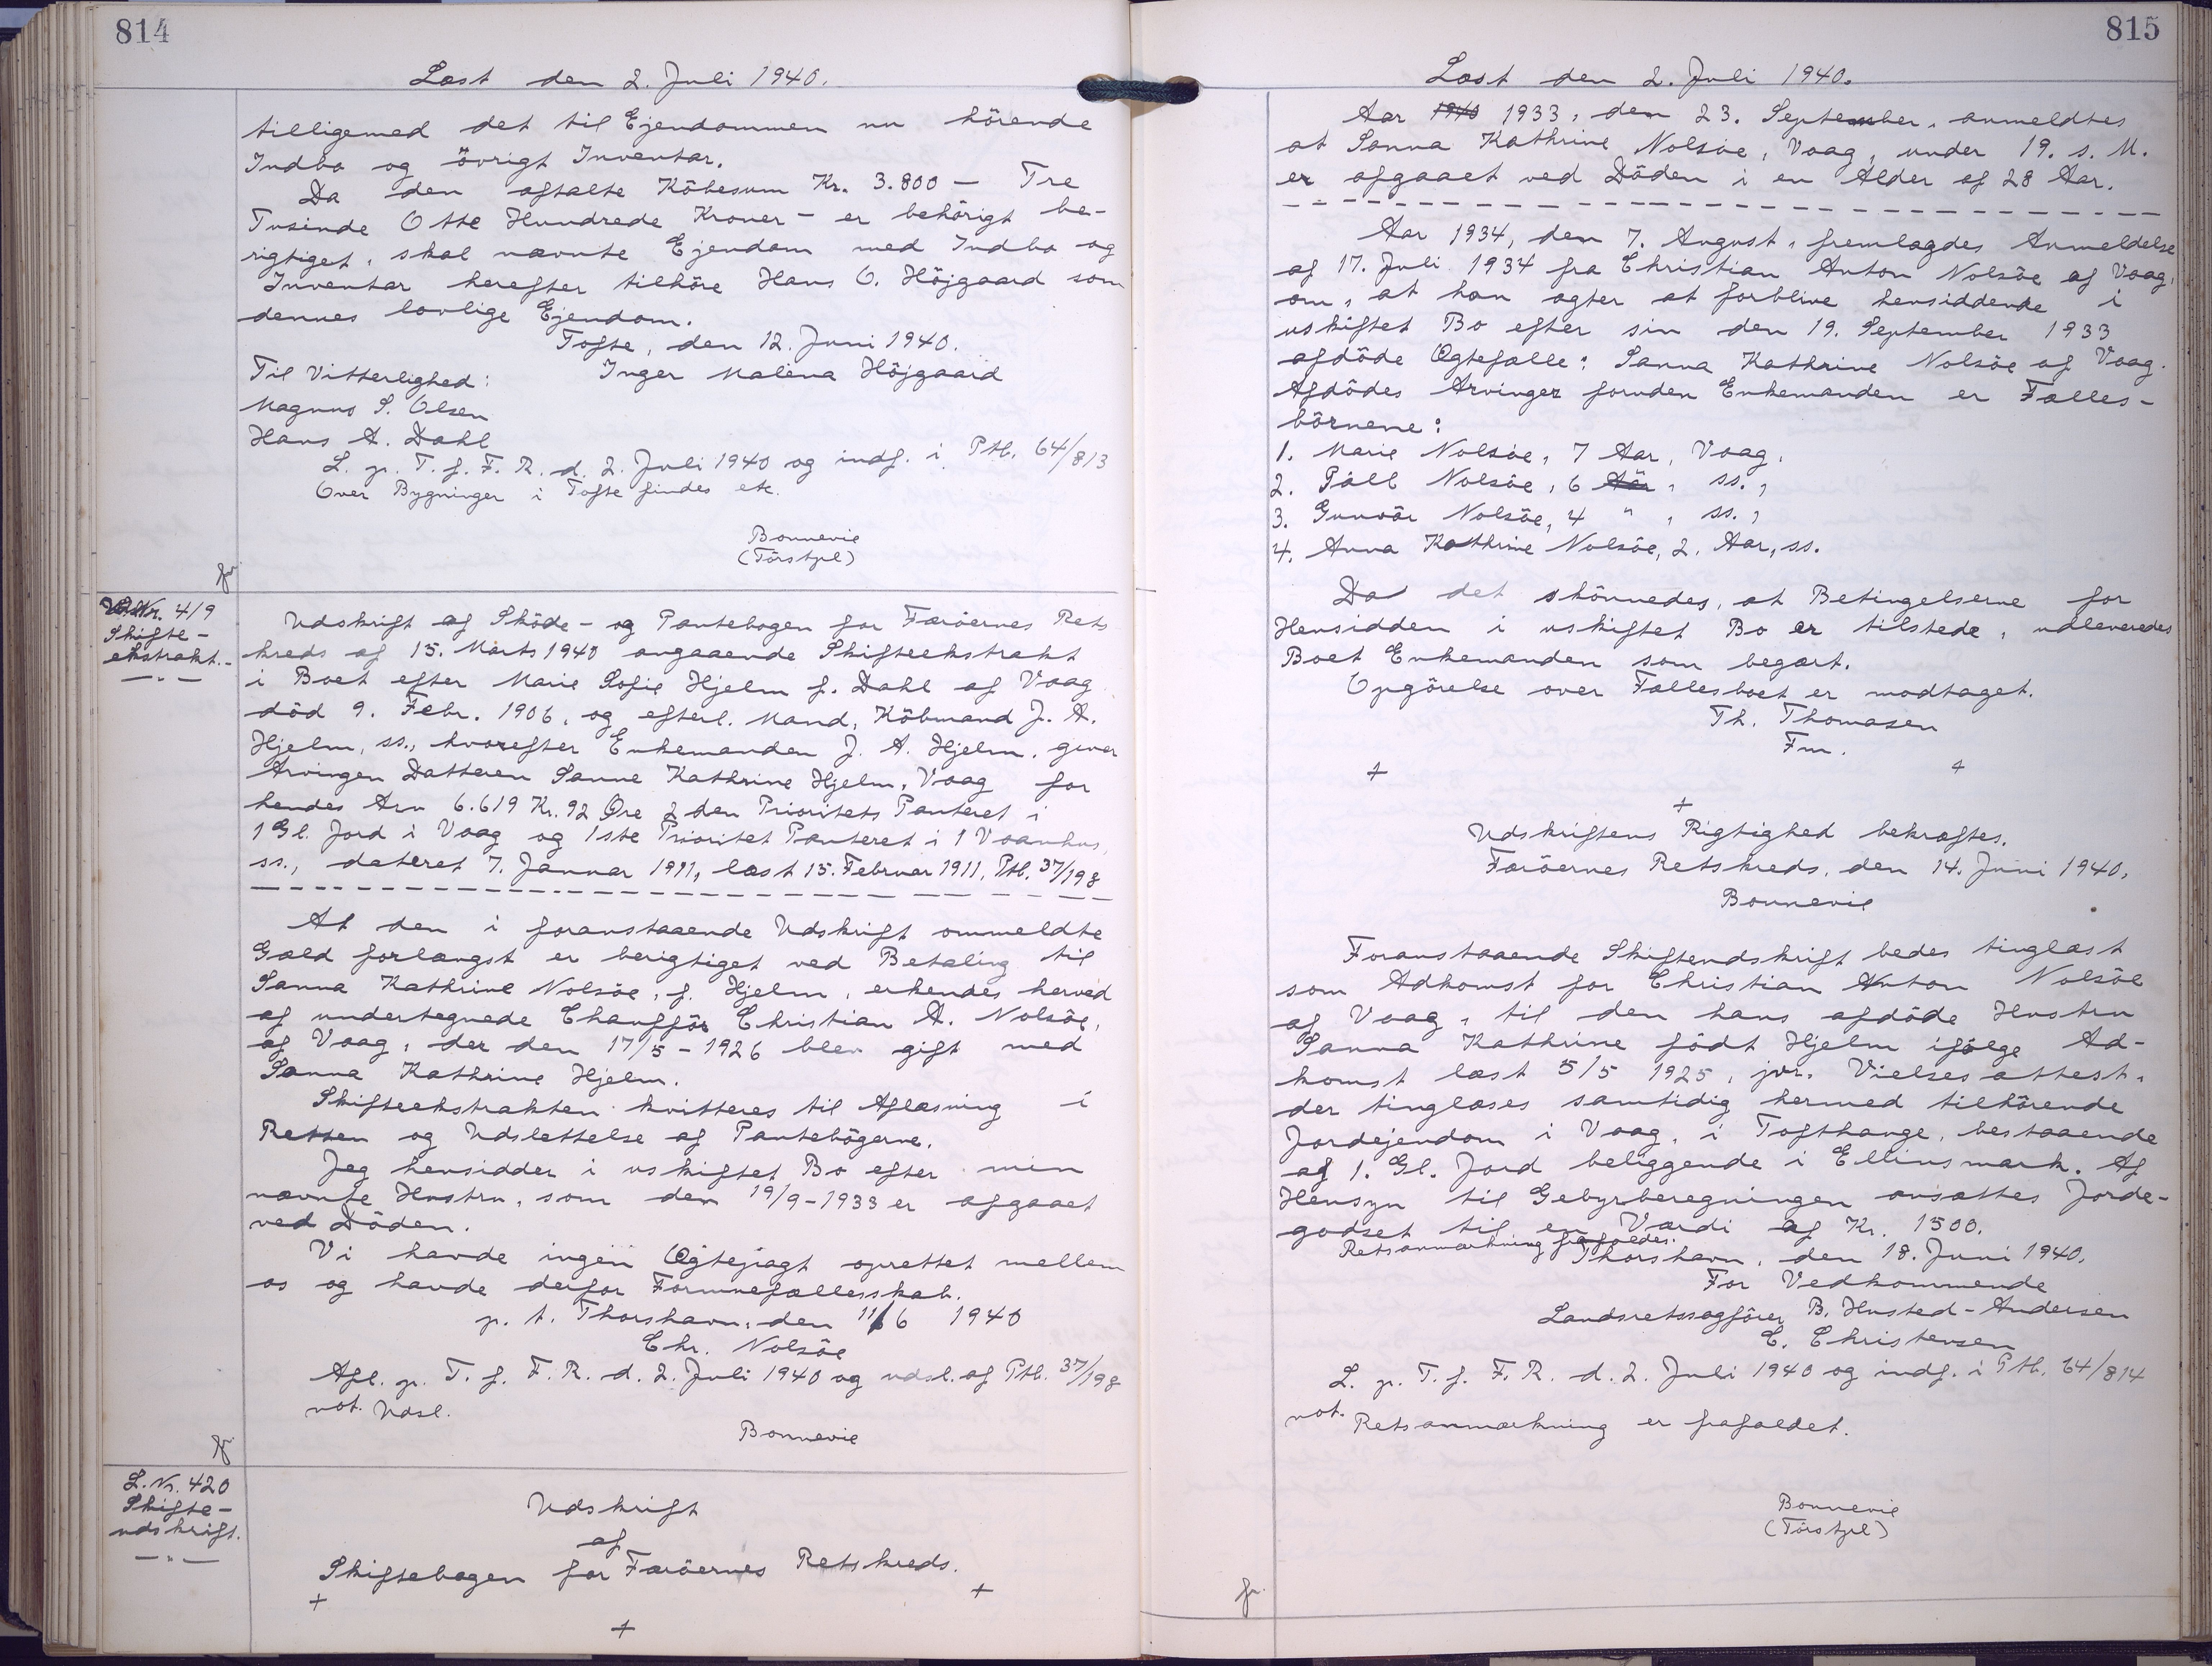 814
Læst den 2. Juli 1940.
tilligemed det til Ejendommen nu hörende
Indbo og övrigt Inventar.
Da den aftalte Köbesum Kr. 3.800 – Tre
Tusinde Otte Hundrede Kroner – er behörigt be-
rigtiget, skal nævnte Ejendom med Indbo og
Inventar herefter tilhöre Hans O. Höjgaard som
dennes lovlige Ejendom.
Tofte, den 12. Juni 1940.
Til Vitterlighed: Inger Malena Höjgaard
Magnus S. Olsen
Hans A. Dahl
L. p. T. f. F. R. d. 2. Juli 1940 og indf. i Ptb. 64/813
Over Bygninger i Tofte findes etc.
Bonnevie
(Törstzel)
fr
Nr. 419
Skifte-
ekstrakt.-
—„—
Udskrift af Sköde- og Pantebogen for Færöernes Rets
kreds af 15. Marts 1940 angaaende Skifteekstrakt
i Boet efter Marie Sofie Hjelm f. Dahl af Vaag
död 9. Febr. 1906, og efterl. Mand, Köbmand J. A.
Hjelm, ss., hvorefter Enkemanden J. A. Hjelm, giver
Arvingen Datteren Sanne Kathrine Hjelm, Vaag for
hendes Arv 6.619 Kr. 92 Øre 2den Prioritets Panteret i
1 Gl. Jord i Vaag og 1ste Prioritet Panteret i 1 Vaanhus,
ss., dateret 7. Januar 1911, læst 15. Februar 1911, Ptb. 37/198
At den i foranstaaende Udskrift ommeldte
Gæld forlængst er berigtiget ved Betaling til
Sanna Kathrine Nolsöe, f. Hjelm, erkendes herved
af undertegnede Chaufför Christian A. Nolsöe,
af Vaag, der den 17/5 - 1926 blev gift med
Sanna Kathrine Hjelm.
Skifteekstrakten kvitteres til Aflæsning i
Retten og Udslettelse af Pantebögerne.
Jeg hensidder i uskiftet Bo efter min
nævnte Hustru, som den 19/9-1933 er afgaaet
ved Döden.
Vi havde ingen Ægtepagt oprettet mellem
os og havde derfor Formuefællesskab.
p. t. Thorshavn, den 11/6 1940
Chr. Nolsöe
Afl. p. T. f. F. R. d. 2. Juli 1940 og udsl. af Ptb. 37/198
not. Udsl.
Bonnevie
fr
L. Nr. 420
Skifte-
udskrift.
—„—
Udskrift
af
Skiftebogen for Færöernes Retskreds.
+ +
+
815
Læst den 2. Juli 1940.
Aar 1940 1933, den 23. September, anmeldtes
at Sanna Kathrine Nolsöe, Vaag, under 19. s. M.
er afgaaet ved Döden i en Alder af 28 Aar.
Aar 1934, den 7. August, fremlagdes Anmeldelse
af 17. Juli 1934 fra Christian Anton Nolsöe af Vaag,
om, at han agter at forblive hensiddende i
uskiftet Bo efter sin den 19. September 1933
afdöde Ægtefælle: Sanna Kathrine Nolsöe af Vaag.
Afdödes Arvinger foruden Enkemanden er Fælles-
börnene:
1. Marie Nolsöe, 7 Aar, Vaag,
2. Páll Nolsöe, 6 Aar, ss.,
3. Gunvör Nolsöe, 4 " , ss.,
4. Anna Kathrine Nolsöe, 2. Aar, ss.
Da det skönnedes, at Betingelserne for
Hensidden i uskiftet Bo er tilstede, udleveredes
Boet Enkemanden som begært.
Opgörelse over Fællesboet er modtaget.
Th. Thomasen
Fm.
+ +
+
Udskriftens Rigtighed bekræftes.
Færöernes Retskreds, den 14. Juni 1940.
Bonnevie
Foranstaaende Skifteudskrift bedes tinglæst
som Adkomst for Christian Anton Nolsöe
af Vaag, til den hans afdöde Hustru
Sanna Kathrine födt Hjelm ifölge Ad-
komst læst 5/5 1925, jvr. Vielsesattest,
der tinglæses samtidig hermed tilhörende
Jordejendom i Vaag, i Tofthauge, bestaaende
af 1. Gl. Jord beliggende i Ellinsmark. Af
Hensyn til Gebyrberegningen ansættes Jorde-
godset til en Værdi af Kr. 1500.
Retsanmærkning frafaldes.
Thorshavn, den 18. Juni 1940.
For Vedkommende
Landsretssagförer B. Husted-Andersen
E. Christensen
L. p. T. f. F. R. d. 2. Juli 1940 og indf. i Ptb. 64/814
not. Retsanmærkning er frafaldet.
Bonnevie
(Törstzel)
fr.